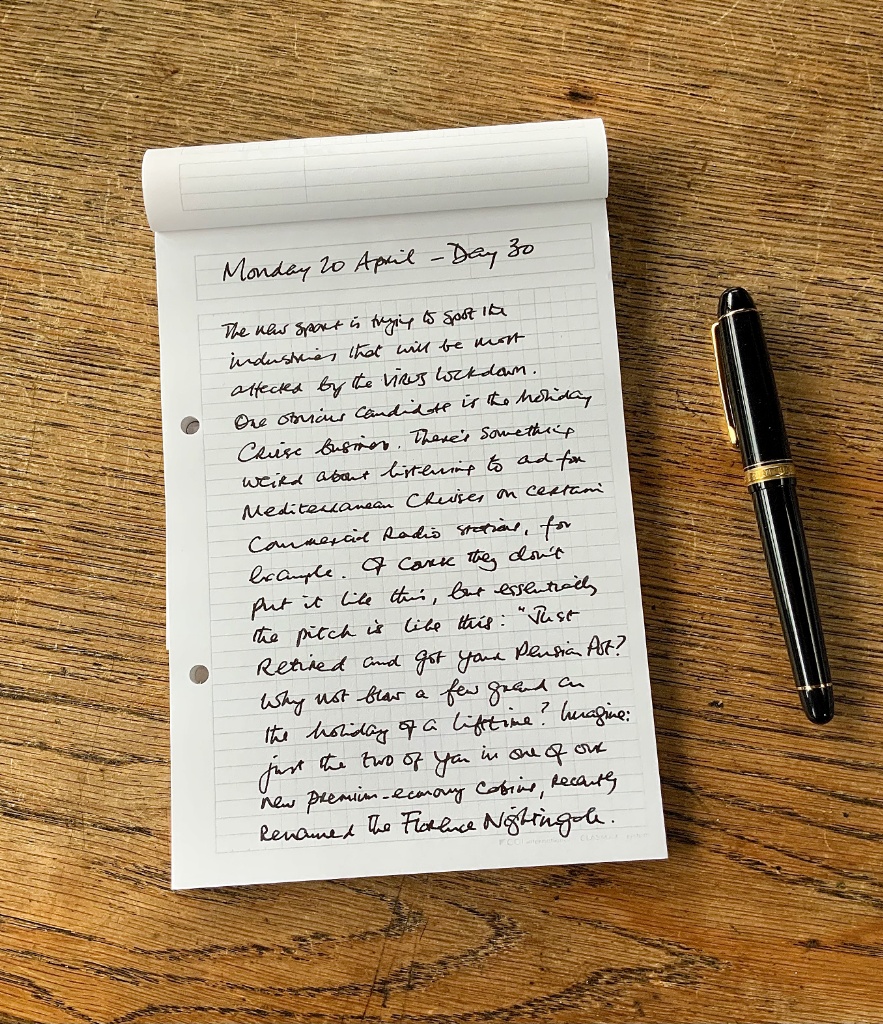 Monday 20 April – Day 30
The new sport is trying to spot the
industries that will be most
affected by the virus lockdown.
One obvious candidate is the holiday
Cruise business. There's something
weird about listening to ad for
Mediterranean Cruises on certain
Commercial Radio stations, for
Example. Of course they don't
put it like this, but essentially
the pitch is like this: "Just
Retired and got your Pension Pot?
Why not blow a few grand on
the holiday of a lifetime? Imagine:
just the two of you in one of our
new premium-economy cabins, recently
Renamed The Florence Nightingale.